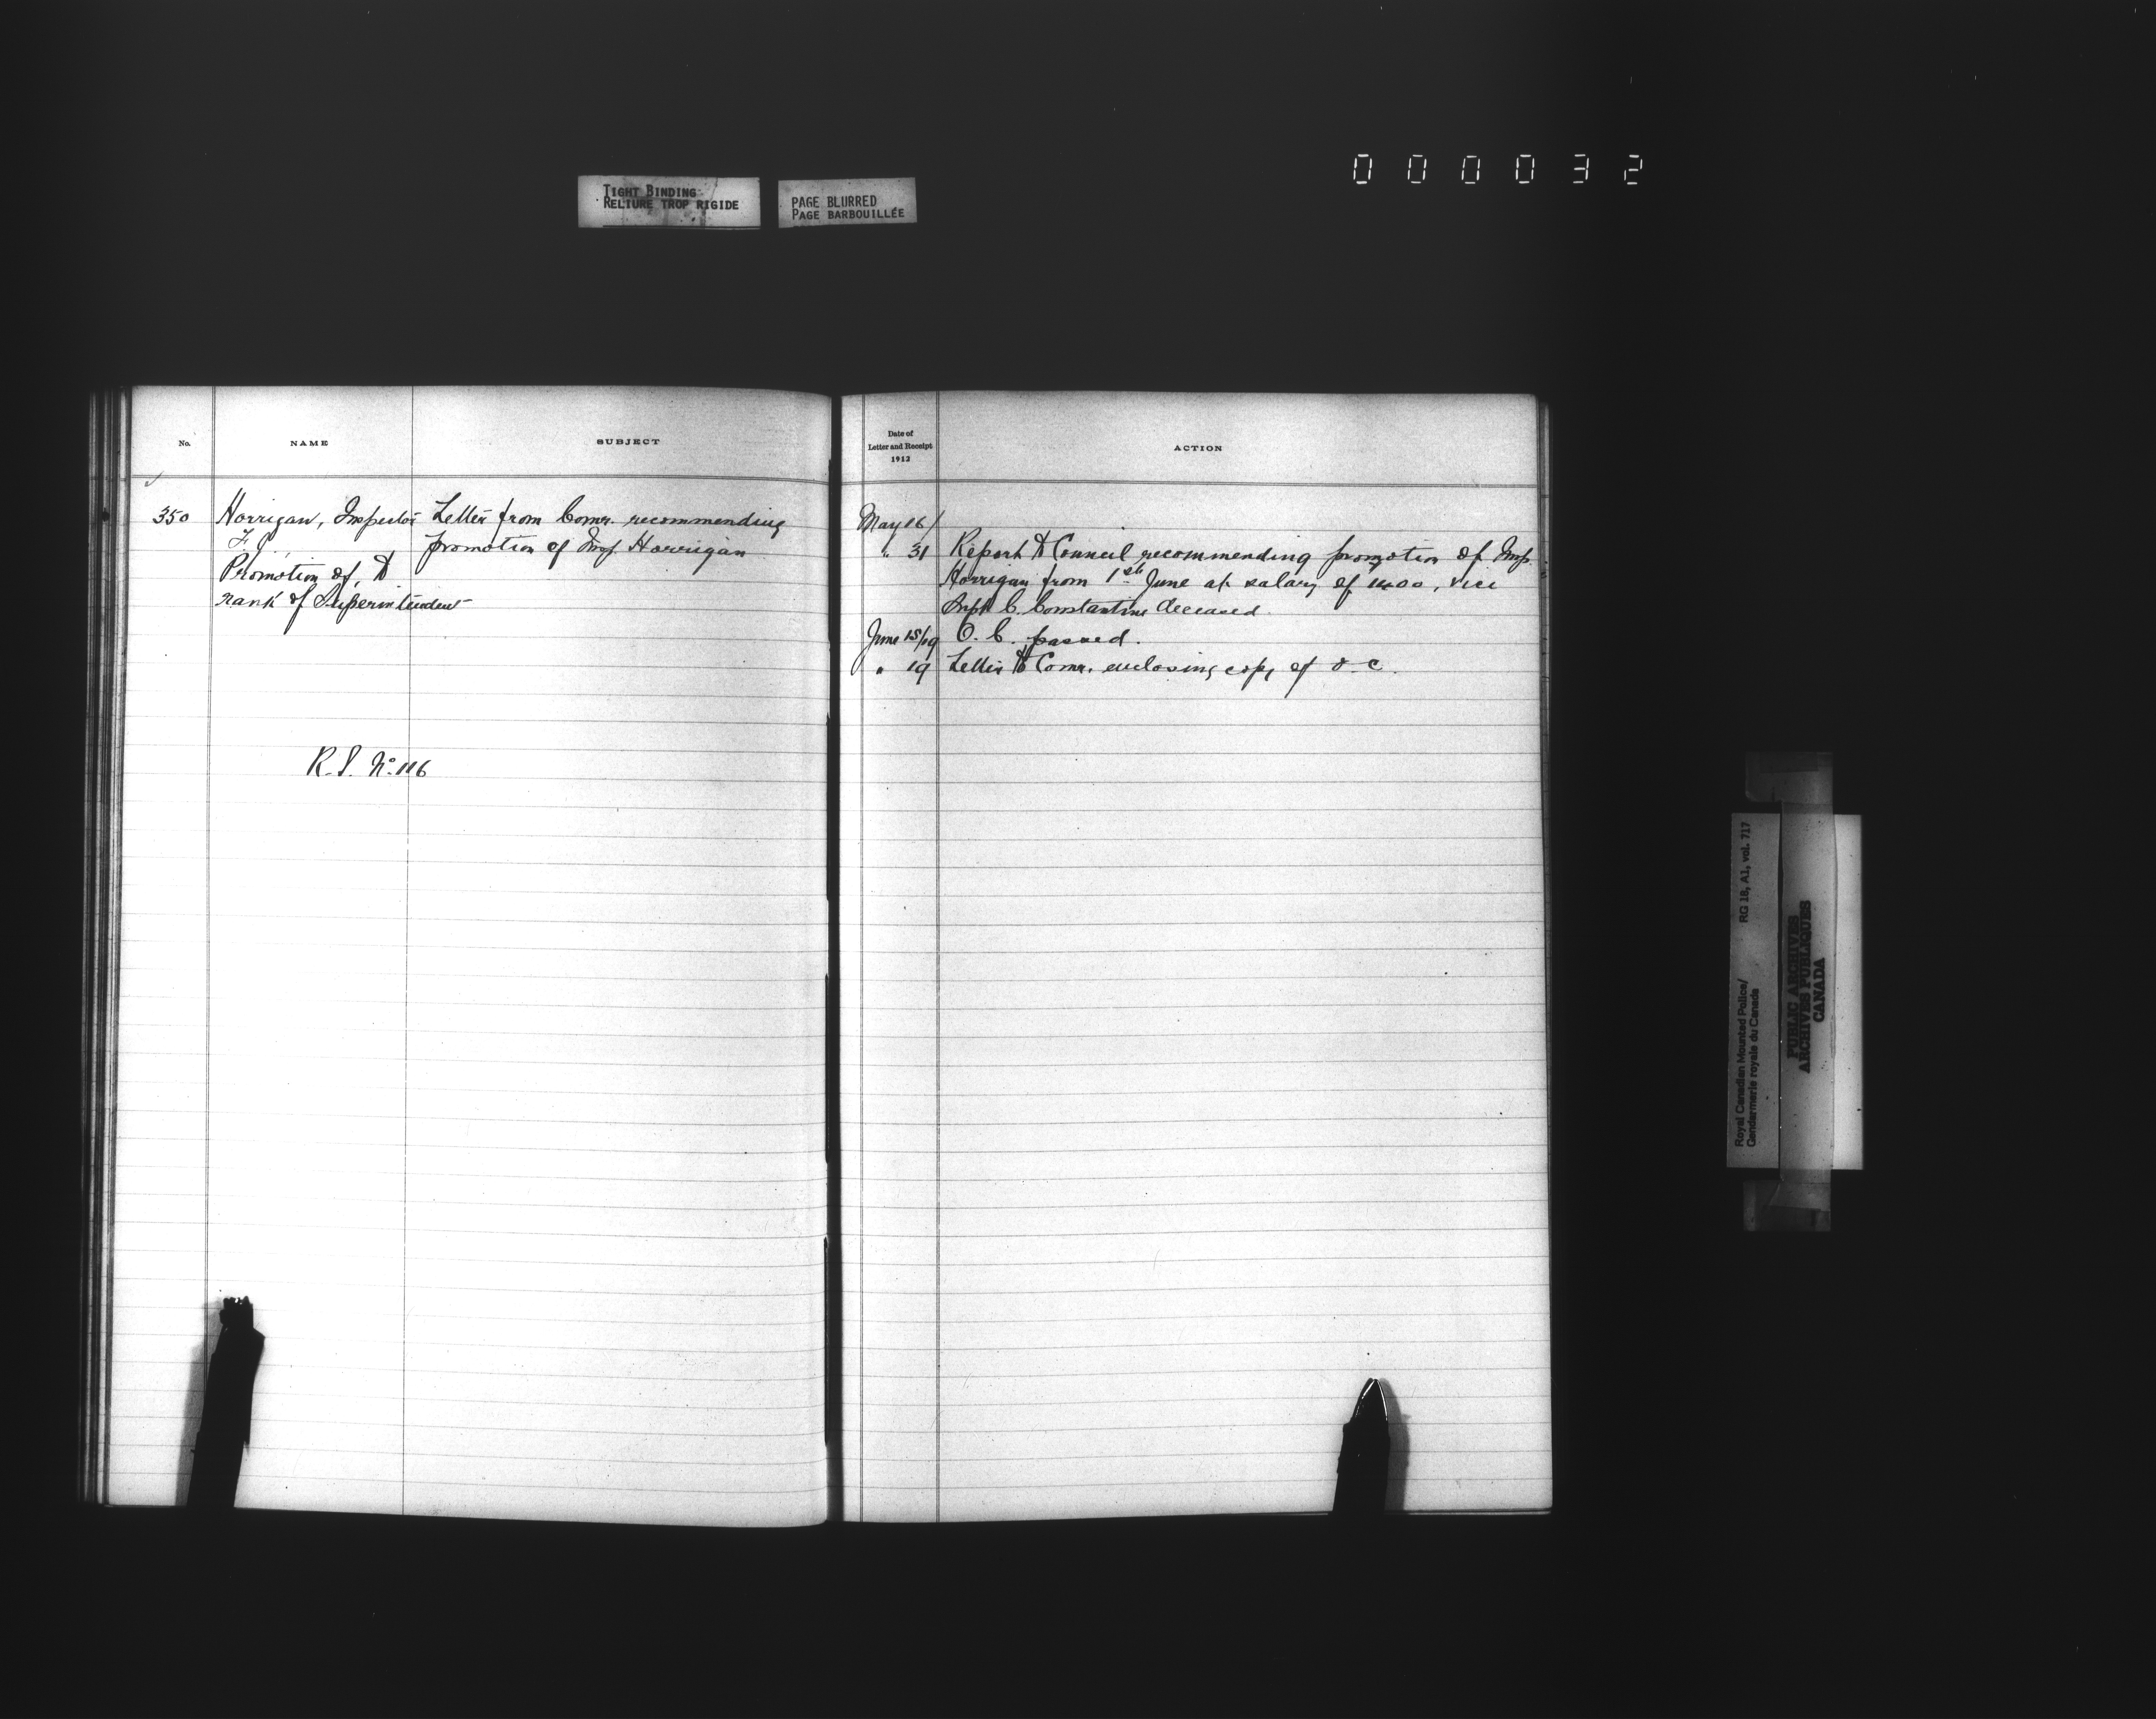 TIGHT BINDING
RELIURE TROP RIGIDE
PAGE BLURRED
PAGE BARBOUILLÉE
000032
No.
NAME
SUBJECT
350
Horrigan, Inspector
F.J.
Promotion of, to
rank of Superintendent
Letter from Comr. recommending
promotion of Insp. Horrigan
R.S. No. 116
Date of
Letter and Receipt
1912
ACTION
May 16/
" 31 Report to Council recommending promotion of Insp.
Horrigan from 1st June at salary of 1400, vice
Supt. C. Constantine deceased.
June 15/19 O.C. passed.
" 19 Letter to Comr. enclosing copy of O.C.
Royal Canadian Mounted Police/ RG 18, A1, vol. 717
Gendarmerie royale du Canada
PUBLIC ARCHIVES
ARCHIVES PUBLIQUES
CANADA